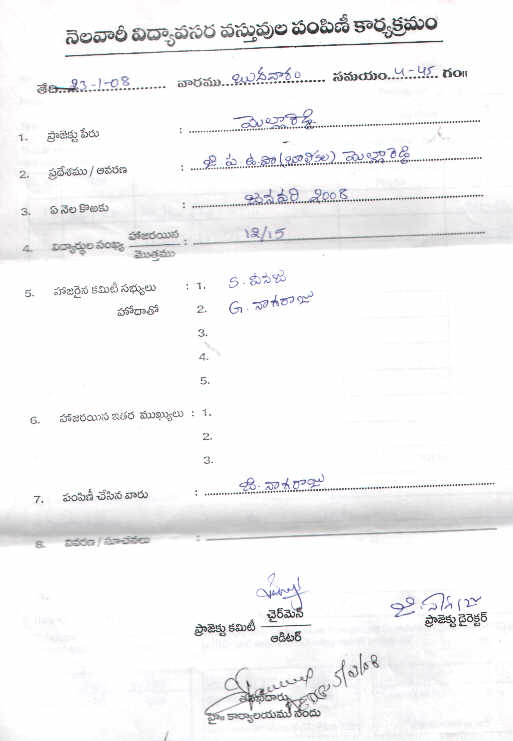 నెలవారీ విద్యావసర వస్తువుల పంపిణీ కార్యక్రమం
తేది 23-1-08 వారము బుధవారం సమయం 4-45 గం॥
1. ప్రాజెక్టు పేరు : మెల్లారెడ్డి
2. ప్రదేశము / ఆవరణ : జి.ప.ఉ.పా (బాలికలు) మెల్లారెడ్డి
3. ఏ నెల కొఱకు : జనవరి 2008
4. విద్యార్థుల సంఖ్య హాజరయిన / మొత్తము : 12/15
5. హాజరైన కమిటీ సభ్యులు : 1. S.
హోదాతో 2. G. నాగరాజు
3.
4.
5.
6. హాజరయిన ఇతర ముఖ్యులు : 1.
2.
3.
7. పంపిణీ చేసిన వారు : జి. నాగరాజు
8. వివరణ / సూచనలు :
ప్రాజెక్టు కమిటీ చైర్‌మెన్ / ఆడిటర్
జి. నాగరాజు
ప్రాజెక్టు డైరెక్టర్
5/02/08
హై॥ కార్యాలయము నందు